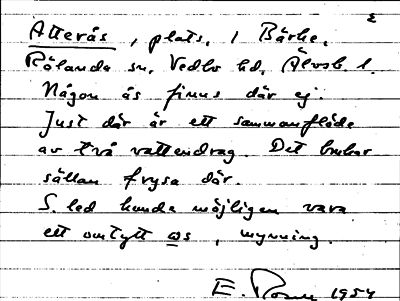 Atterås, plats, i Bärbe,
Rölanda sn, Vedbo hd, Älvsb. l.
Någon ås finns där ej.
Just där är ett sammanflöde
av två vattendrag. Det brukar
sällan frysa där.
S. led kunde möjligen vara
ett omtytt os, mynning.
E. 1954